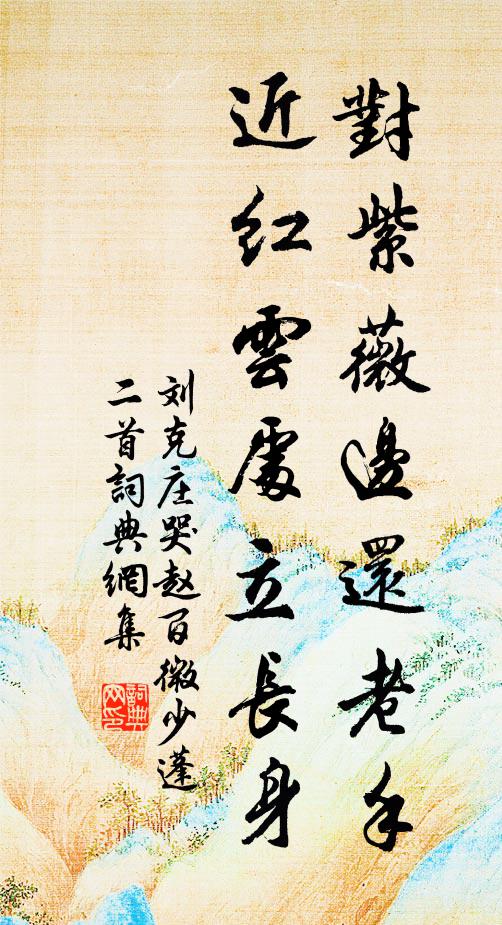 對紫薇邊還老手
近紅雲處立長身
刘克庄哭赵百微少蓬
二首詞典網集
詞典
网印